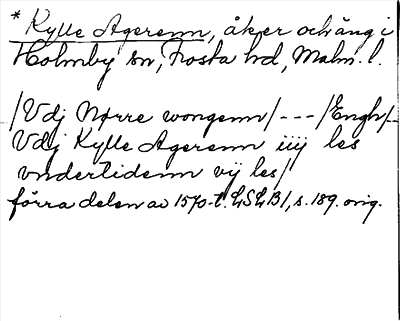 * Kylle Agerenn, åker och äng i
Holmby sn, Frosta hd, Malm. l.
/Vdj Nørre wongenn/---/Engh/--
Vdj Kylle Agerenn iiij les
vndertidenn vij les/
förra delen av 1570-t. LSLB1, s. 189. orig.